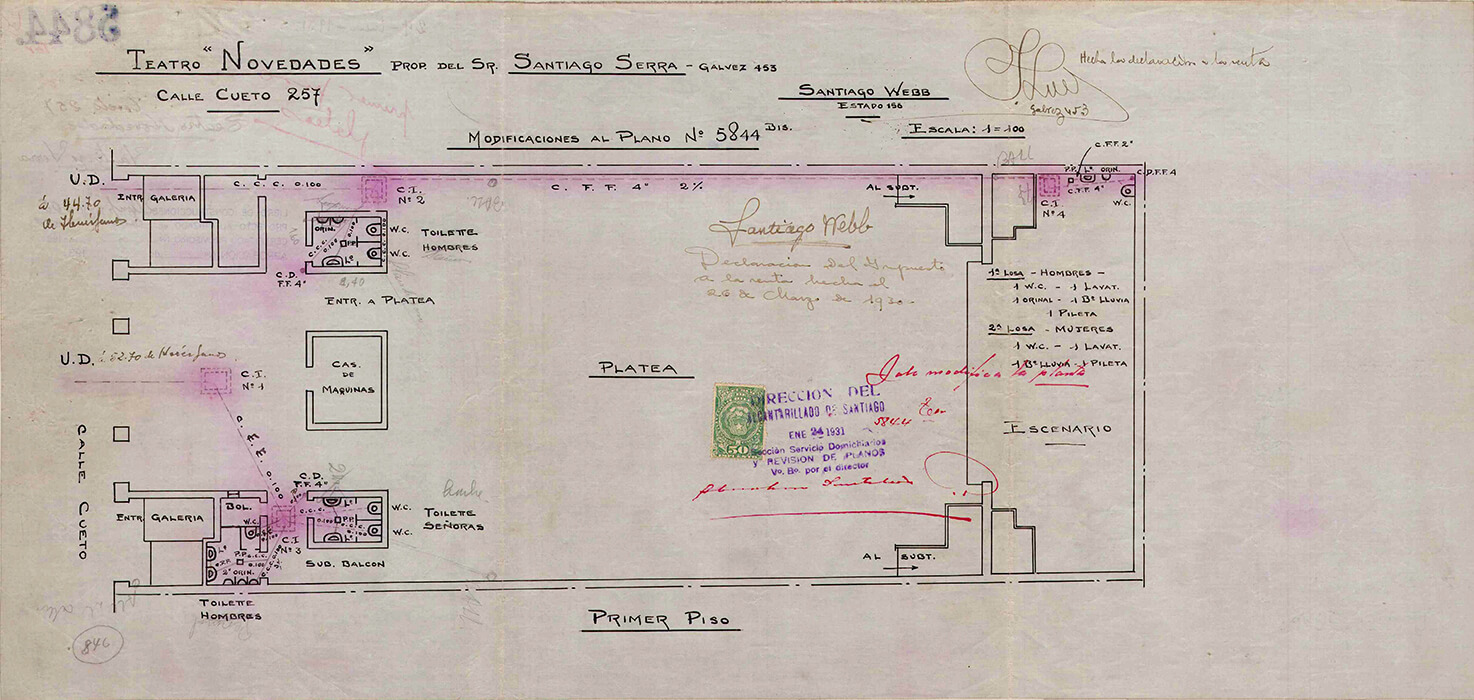 5844.
TEATRO "NOVEDADES" PROP. DEL SR. SANTIAGO SERRA - GALVEZ 453
CALLE CUETO 257
SANTIAGO WEBB
ESTADO 156
Hecha la declaración a la renta
Galvez 453
MODIFICACIONES AL PLANO Nº 5844 BIS.
ESCALA: 1=100
U.D.
á 44.70
ENTR
GALERIA
C. C. C. 0.100
C.I.
Nº 2
C. F. F. 4" 2%
AL SUBT.
C.F.F. 2"
P.P. Lº ORIN.
C.D.F.F. 4
C.F.F. 4"
C.I
Nº 4
W.C.
ORIN.
C.C.C. 0.100
P.P.
Lº
W.C.
W.C.
TOILETTE
HOMBRES
C.D.
F.F. 4"
2,40
ENTR. A PLATEA
Santiago Webb
Declaracion del Impuesto
a la renta hecha el
26 de Marzo de 1930.
1ª LOSA - HOMBRES -
1 W.C. - 1 LAVAT.
1 ORINAL - 1 Bº LLUVIA
1 PILETA
2ª LOSA - MUJERES
1 W.C. - 1 LAVAT.
1 Bº LLUVIA - 1 PILETA
U.D. á 52.70 de
C.I.
Nº 1
CAS.
DE
MAQUINAS
PLATEA
modifica la planta
5844
50
DIRECCION DEL
ALCANTARILLADO DE SANTIAGO
ENE 24 1931
Sección Servicio Domiciliarios
y REVISION DE PLANOS
Vo. Bo. por el director
ESCENARIO
CALLE CUETO
0.100
C.D.
F.F. 4"
ENTR
GALERIA
BOL.
W.C.
C.I
Nº 3
Lº
C.C.C.
0.100
P.P.
Lº
W.C.
W.C.
TOILETTE
SEÑORAS
Lº
P.P. C.C.C.
0.100
2º ORIN.
SUB. BALCON
TOILETTE
HOMBRES
AL SUBT.
PRIMER PISO
846